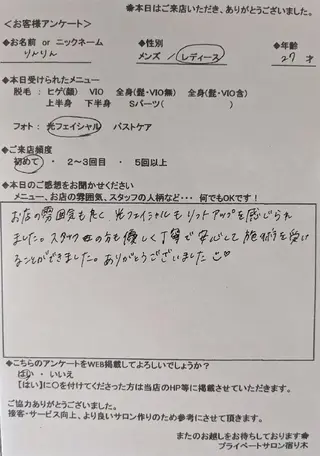 ★本日はご来店いただき、ありがとうございました。
＜お客様アンケート＞
◆お名前 or ニックネーム ◆性別 ◆年齢
りんりん メンズ ／ レディース 27 才
◆本日受けられたメニュー
脱毛 ： ヒゲ(顔) VIO 全身(髭・VIO無) 全身(髭・VIO含)
上半身 下半身 Sパーツ( )
フォト： 光フェイシャル バストケア
◆ご来店頻度
初めて ・ 2～3回目 ・ 5回以上
◆本日のご感想をお聞かせください
メニュー、お店の雰囲気、スタッフの人柄など・・・ 何でもOKです！
お店の雰囲気も良く 光フェイシャルもリフトアップを感じられ
ました。スタッフの方も優しく丁寧で安心して施術を受け
ることができました。ありがとうございました♡
◆こちらのアンケートをWEB掲載してよろしいでしょうか？
はい ・ いいえ
【はい】に○を付けてくださった方は当店のHP等に掲載させていただきます。
ご協力ありがとうございました。
接客・サービス向上、より良いサロン作りのため参考にさせて頂きます。
またのお越しをお待ちしております★
プライベートサロン宿り木